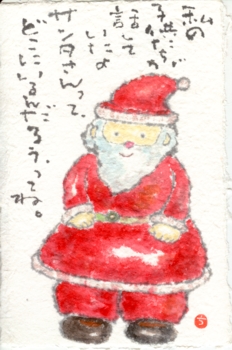 私の
子供たちが
話して
いたよ
サンタさんって、
どこにいるんだろうってね。